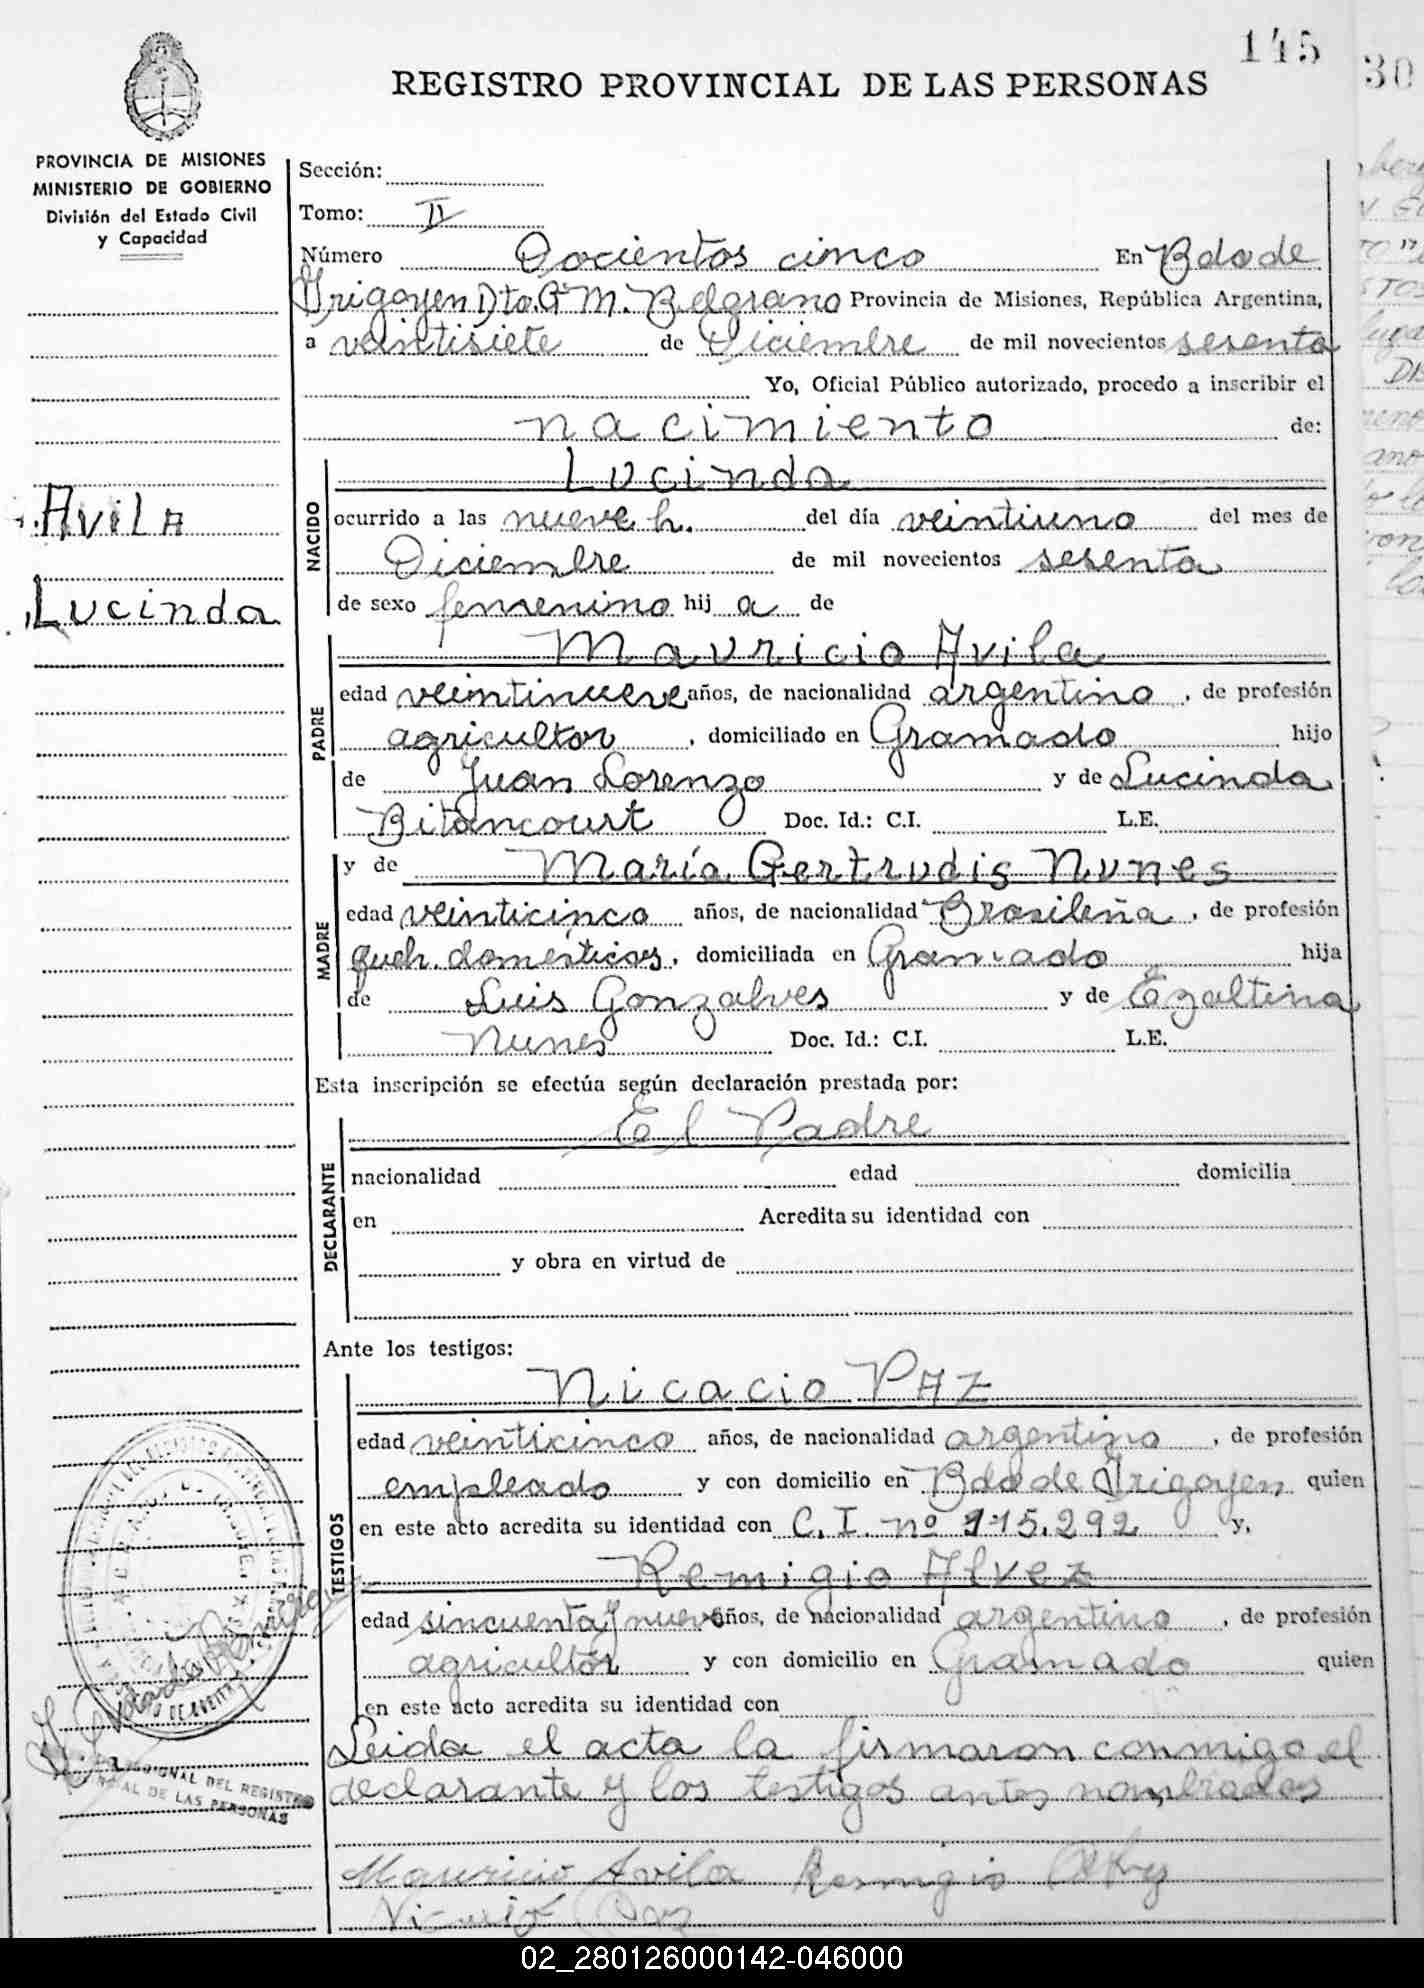 145
30
REGISTRO PROVINCIAL DE LAS PERSONAS
PROVINCIA DE MISIONES
MINISTERIO DE GOBIERNO
División del Estado Civil
y Capacidad
AVILA
Lucinda
Sección:
Tomo: II
Número Docientos cinco En Bdo de
Irigoyen Dto. Gl M. Belgrano Provincia de Misiones, República Argentina,
a veintisiete de Diciembre de mil novecientos sesenta
Yo, Oficial Público autorizado, procedo a inscribir el
nacimiento de:
NACIDO
Lucinda
ocurrido a las nueve h. del día veintiuno del mes de
Diciembre de mil novecientos sesenta
de sexo femenino hij a de
PADRE
Mauricio Avila
edad veintinueve años, de nacionalidad argentino, de profesión
agricultor, domiciliado en Gramado hijo
de Juan Lorenzo y de Lucinda
Bitancourt Doc. Id.: C.I. L.E.
MADRE
y de María Gertrudis Nunes
edad veinticinco años, de nacionalidad Brasileña, de profesión
queh. domésticos, domiciliada en Gramado hija
de Luis Gonzalves y de Ezaltina
Nunes Doc. Id.: C.I. L.E.
Esta inscripción se efectúa según declaración prestada por:
DECLARANTE
El Padre
nacionalidad edad domicilia
en Acredita su identidad con
y obra en virtud de
Ante los testigos:
TESTIGOS
Nicacio PAZ
edad veinticinco años, de nacionalidad argentino, de profesión
empleado y con domicilio en Bdo de Irigoyen quien
en este acto acredita su identidad con C.I. nº 115.292 y,
Remigio Alvez
edad sincuenta y nueve años, de nacionalidad argentino, de profesión
agricultor y con domicilio en Gramado quien
en este acto acredita su identidad con
Leida el acta la firmaron conmigo el
declarante y los testigos antes nombrados
Mauricio Avila Remigio
DEL REGISTRO
DE LAS PERSONAS
02_280126000142-046000